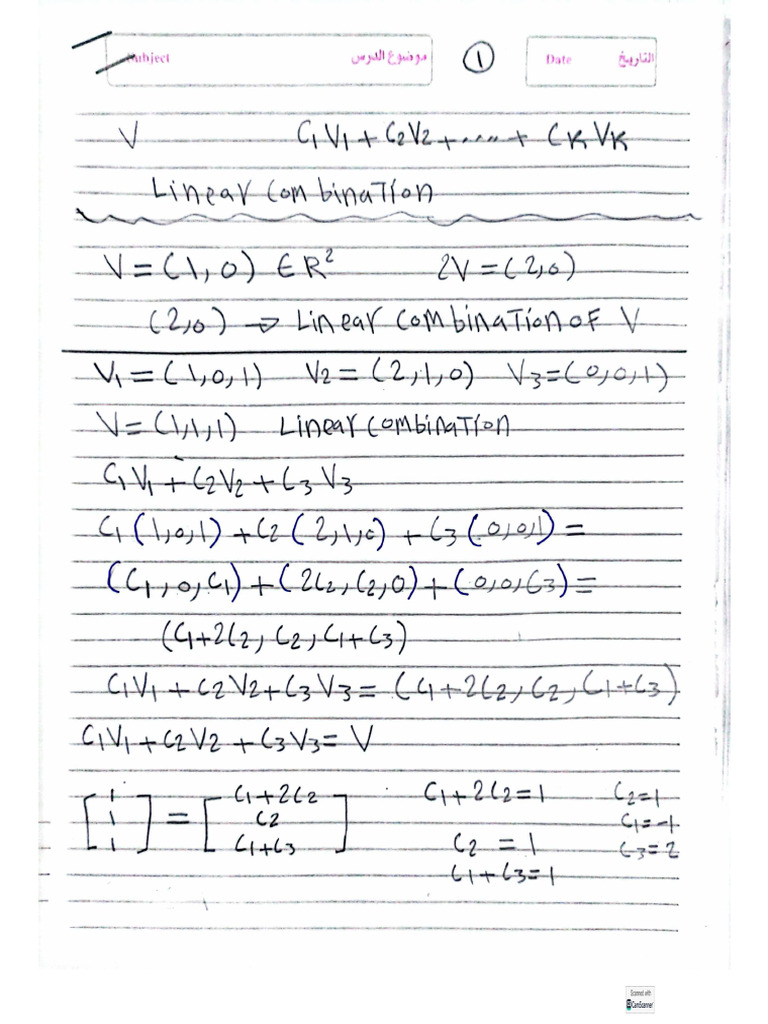 Subject موضوع الدرس ① Date التاريخ
V C₁V₁ + C₂V₂ + ..... + CₖVₖ
Linear Combination
V = (1,0) ∈ R² 2V = (2,0)
(2,0) → Linear Combination of V
V₁ = (1,0,1) V₂ = (2,1,0) V₃ = (0,0,1)
V = (1,1,1) Linear Combination
C₁V₁ + C₂V₂ + C₃V₃
C₁(1,0,1) + C₂(2,1,0) + C₃(0,0,1) =
(C₁,0,C₁) + (2C₂,C₂,0) + (0,0,C₃) =
(C₁+2C₂, C₂, C₁+C₃)
C₁V₁ + C₂V₂ + C₃V₃ = (C₁+2C₂, C₂, C₁+C₃)
C₁V₁ + C₂V₂ + C₃V₃ = V
[1 = [C₁+2C₂ C₁+2C₂=1 C₂=1
1 C₂ C₂ = 1 C₁=-1
1] C₁+C₃] C₁+C₃=1 C₃=2
Scanned with
CamScanner